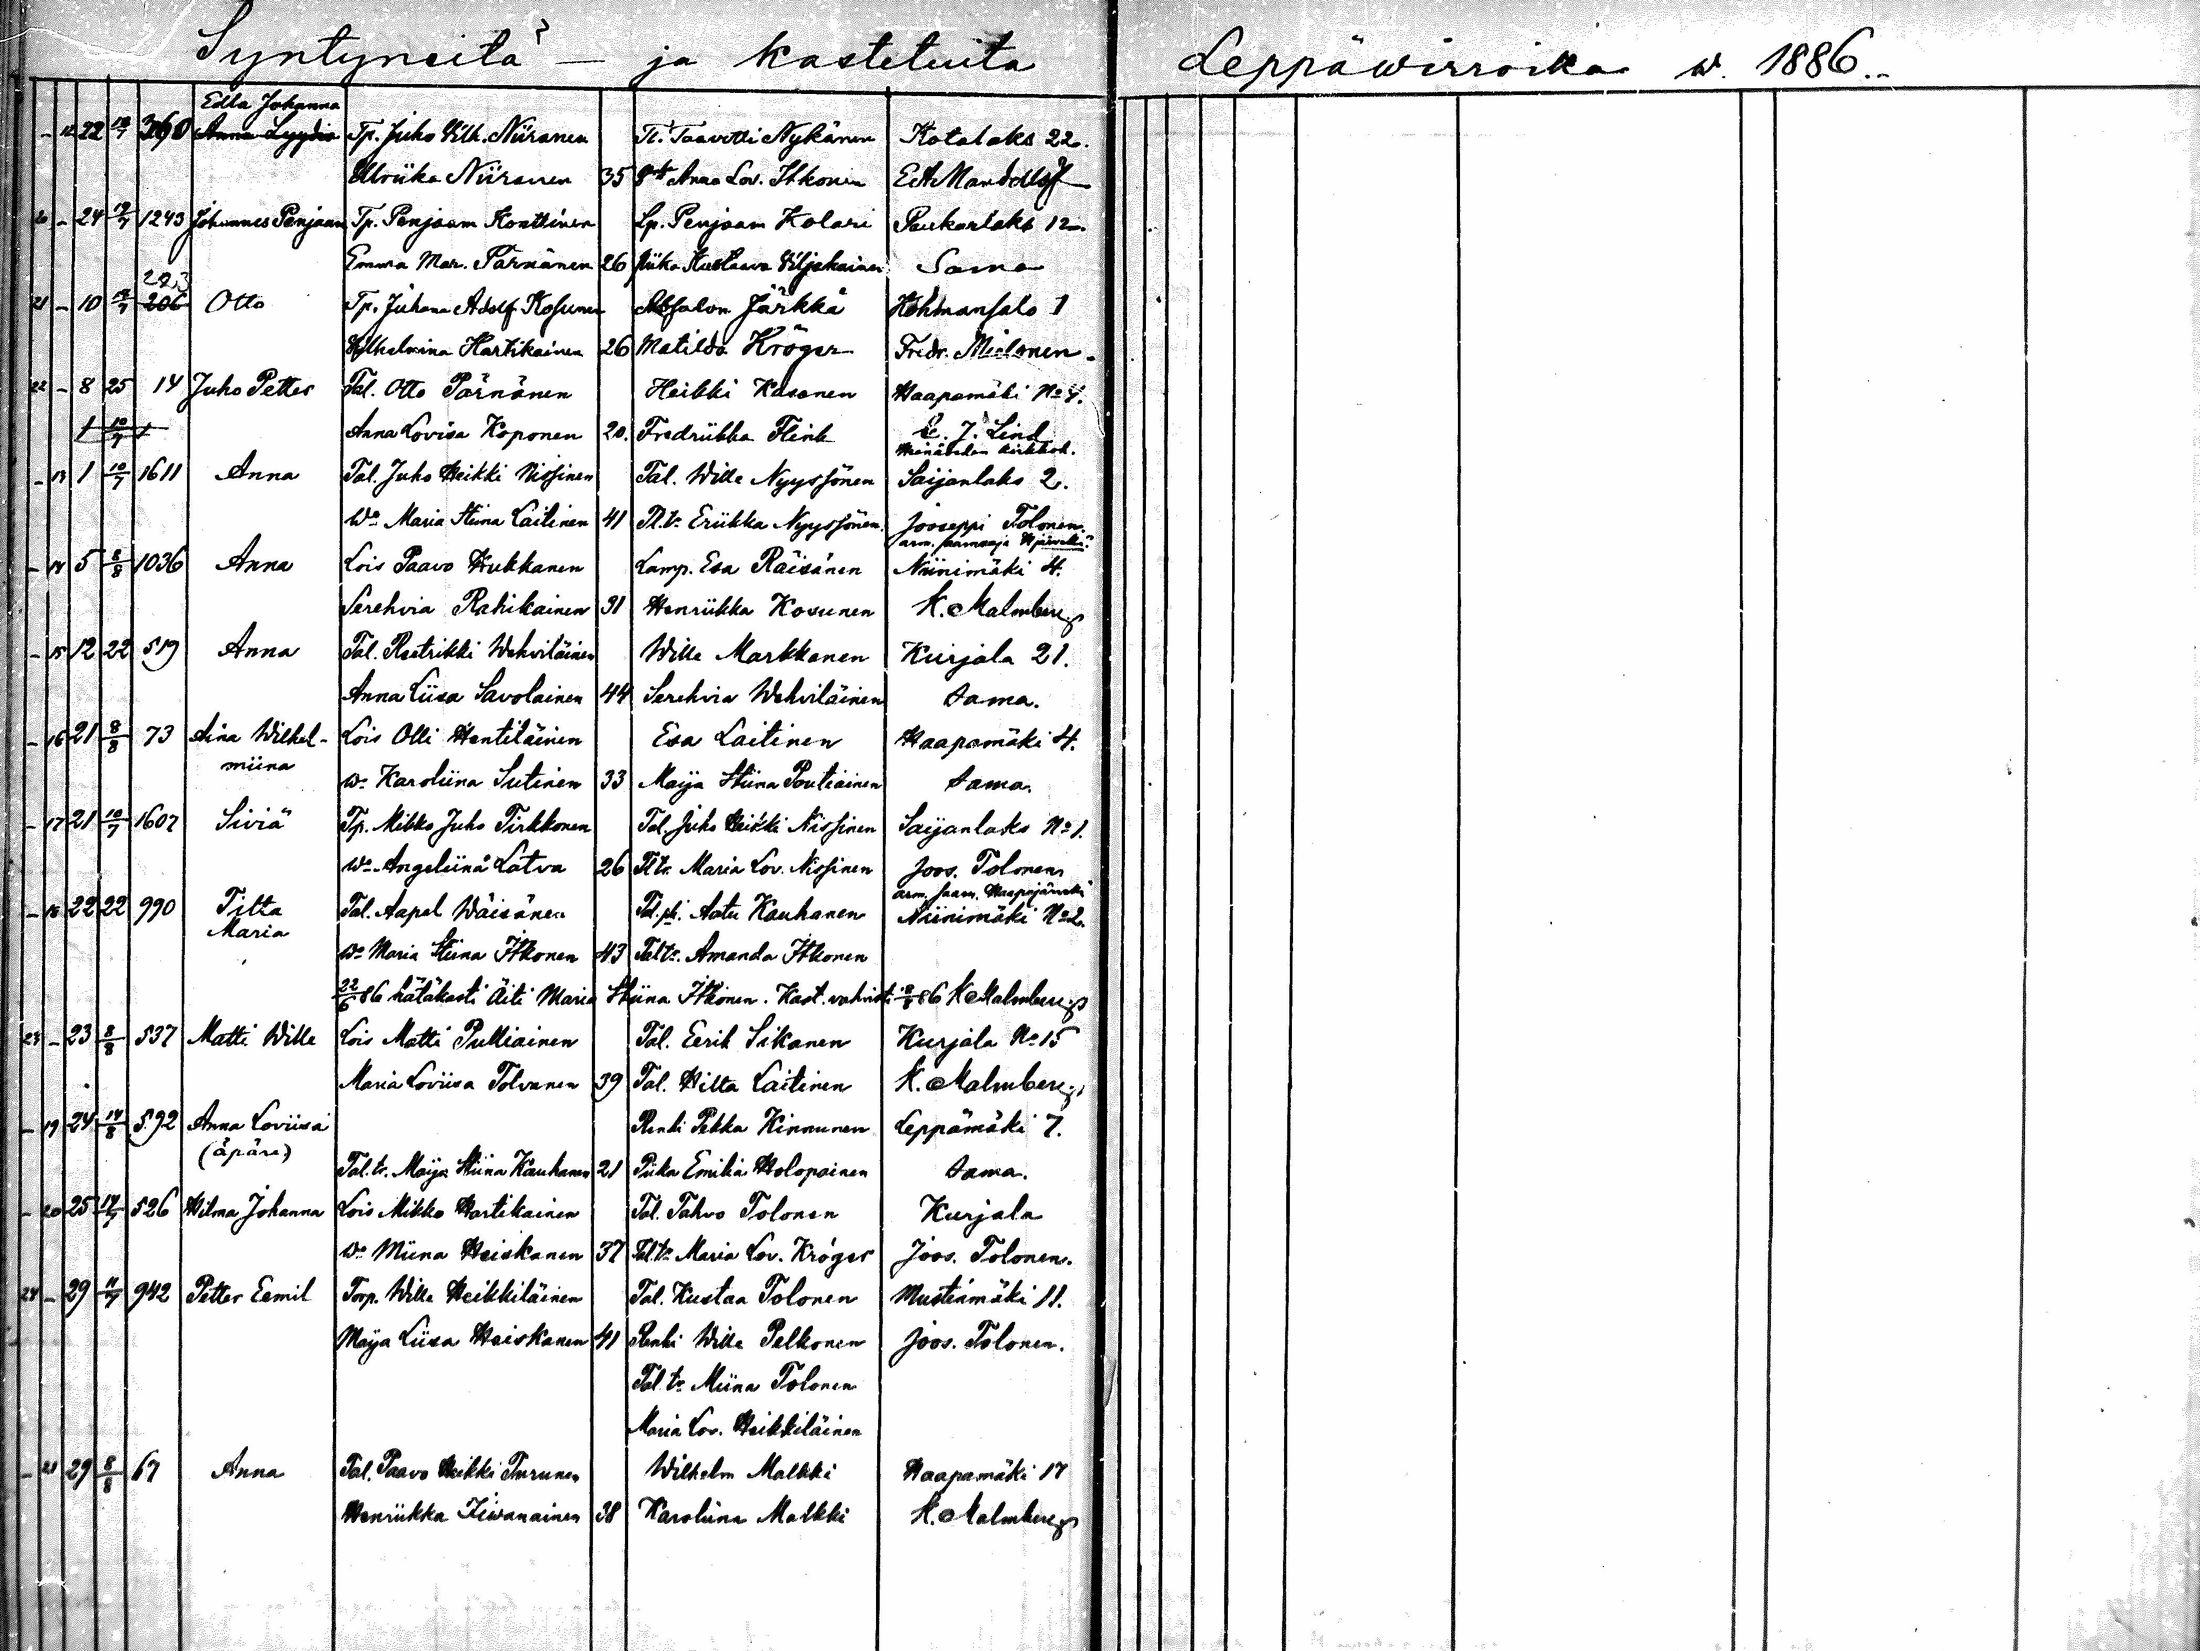 Syntyneitä – ja kastetuita Leppäwirroilta w. 1886.
Edla Johanna
- 12 22 18/7 360 Anna Lyydia Tp. Juho Vilh. Niiranen Tl. Taavetti Nykänen Kotalaks 22.
Ulriika Niiranen 35 Anna Lov. Itkonen
20 - 24 19/7 1243 Johannes Penjam Tp. Penjam Konttinen Lp. Penjam Holari Paukarlaks 12.
Emma Mar. Pärnänen 26 Piika Kustaava Viljakainen Sama
223
21 - 10 18/7 206 Otto Tp. Juhana Adolf Kosunen Absalon Järkkä Kohmansalo 1
Wilhelmina Hartikainen 26 Matilda Kröger Fredr. Mielonen.
22 - 8 25 14 Juho Petter Tal. Otto Pärnänen Heikki Kasanen Haapamäki No 4.
1 10/7 1 Anna Lovisa Koponen 20. Fredriikka Flink J. Lind
Heinäveden kirkkoh.
- 13 1 10/7 1611 Anna Tal. Juho Heikki Nissinen Tal. Wille Nyyssönen Saijanlaks 2.
Wo Maria Stiina Laitinen 41 Tl.tr Eriikka Nyyssönen. Jooseppi Tolonen.
arm. saarnaaja
- 14 5 8/8 1036 Anna Lois Paavo Hukkanen Lamp. Esa Räisänen Niinimäki 4.
Serehvia Rahikainen 31 Henriikka Kosunen K. Malmberg
- 15 12 22 519 Anna Tal. Reetrikki Wehviläinen Wille Markkanen Kurjala 21.
Anna Liisa Savolainen 44 Serehvia Wehviläinen Sama.
- 16 21 8/8 73 Aina Wilhel- Lois Olli Hentiläinen Esa Laitinen Haapamäki 4.
miina
Wo Karoliina Sutinen 33 Maija Stiina Poutiainen Sama.
- 17 21 10/7 1607 Siviä Tp. Mikko Juho Tirkkonen Tal. Juho Heikki Nissinen Saijanlaks No 1.
Wo Angeliina Latva 26 Tl.tr. Maria Lov. Nissinen Joos. Tolonen
arm. saarn. Haapajärvelä
- 18 22 22 990 Titta Tal. Aapel Wäisänen Tal. p. Aatu Kauhanen Niinimäki No 2.
Maria
Wo Maria Stiina Itkonen 43 Tal.tr. Amanda Itkonen
22/6 86 hätäkasti Äiti Maria Stiina Itkonen. Kast. vahvisti 8/8 86 K Malmberg
23 - 23 8/8 537 Matti Wille Lois Matti Pulliainen Tal. Eerik Sikanen Kurjala No 15
Maria Loviisa Tolvanen 39 Tal. Hilta Laitinen K. Malmberg
- 19 24 14/8 592 Anna Loviisa Renki Pekka Kinnunen Leppämäki 7.
(äpärä)
Tal.tr. Maija Stiina Kauhanen 21 Piika Emilia Holopainen Sama.
- 20 25 14/7 526 Hilma Johanna Lois Mikko Hartikainen Tal. Tahvo Tolonen Kurjala
Wo Miina Heiskanen 37 Tal.tr Maria Lov. Kröger Joos. Tolonen.
24 - 29 11/7 942 Petter Eemil Torp. Wille Heikkiläinen Tal. Kustaa Tolonen Mustinmäki 11.
Maija Liisa Heiskanen 41 Renki Wille Pelkonen Joos. Tolonen.
Tal. tr Miina Tolonen
Maria Lov. Heikkiläinen
- 21 29 8/8 67 Anna Tal. Paavo Heikki Turunen Wilhelm Malkki Haapamäki 17
Henriikka Tiwanainen 38 Karoliina Malkki K. Malmberg